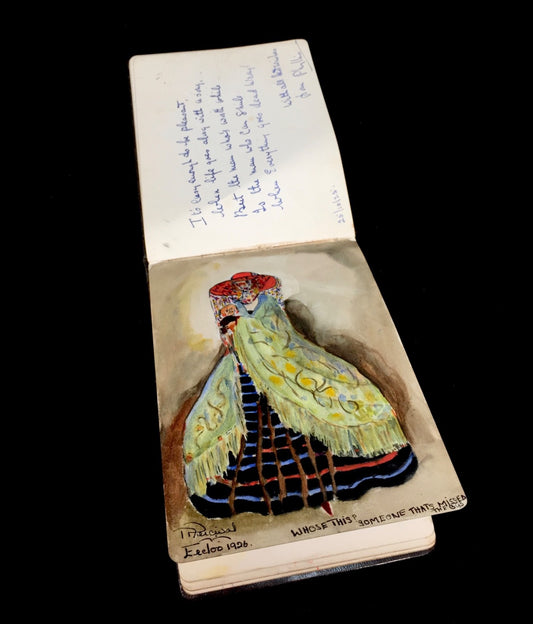 It's easy enough to be pleasant,
When life goes along with a song,
But the man who's worth while
Is the man who can smile
When Everything goes dead wrong!
With all
25/10/25.
WHOSE THIS? SOMEONE THATS MISSED
Eecloo 1926.